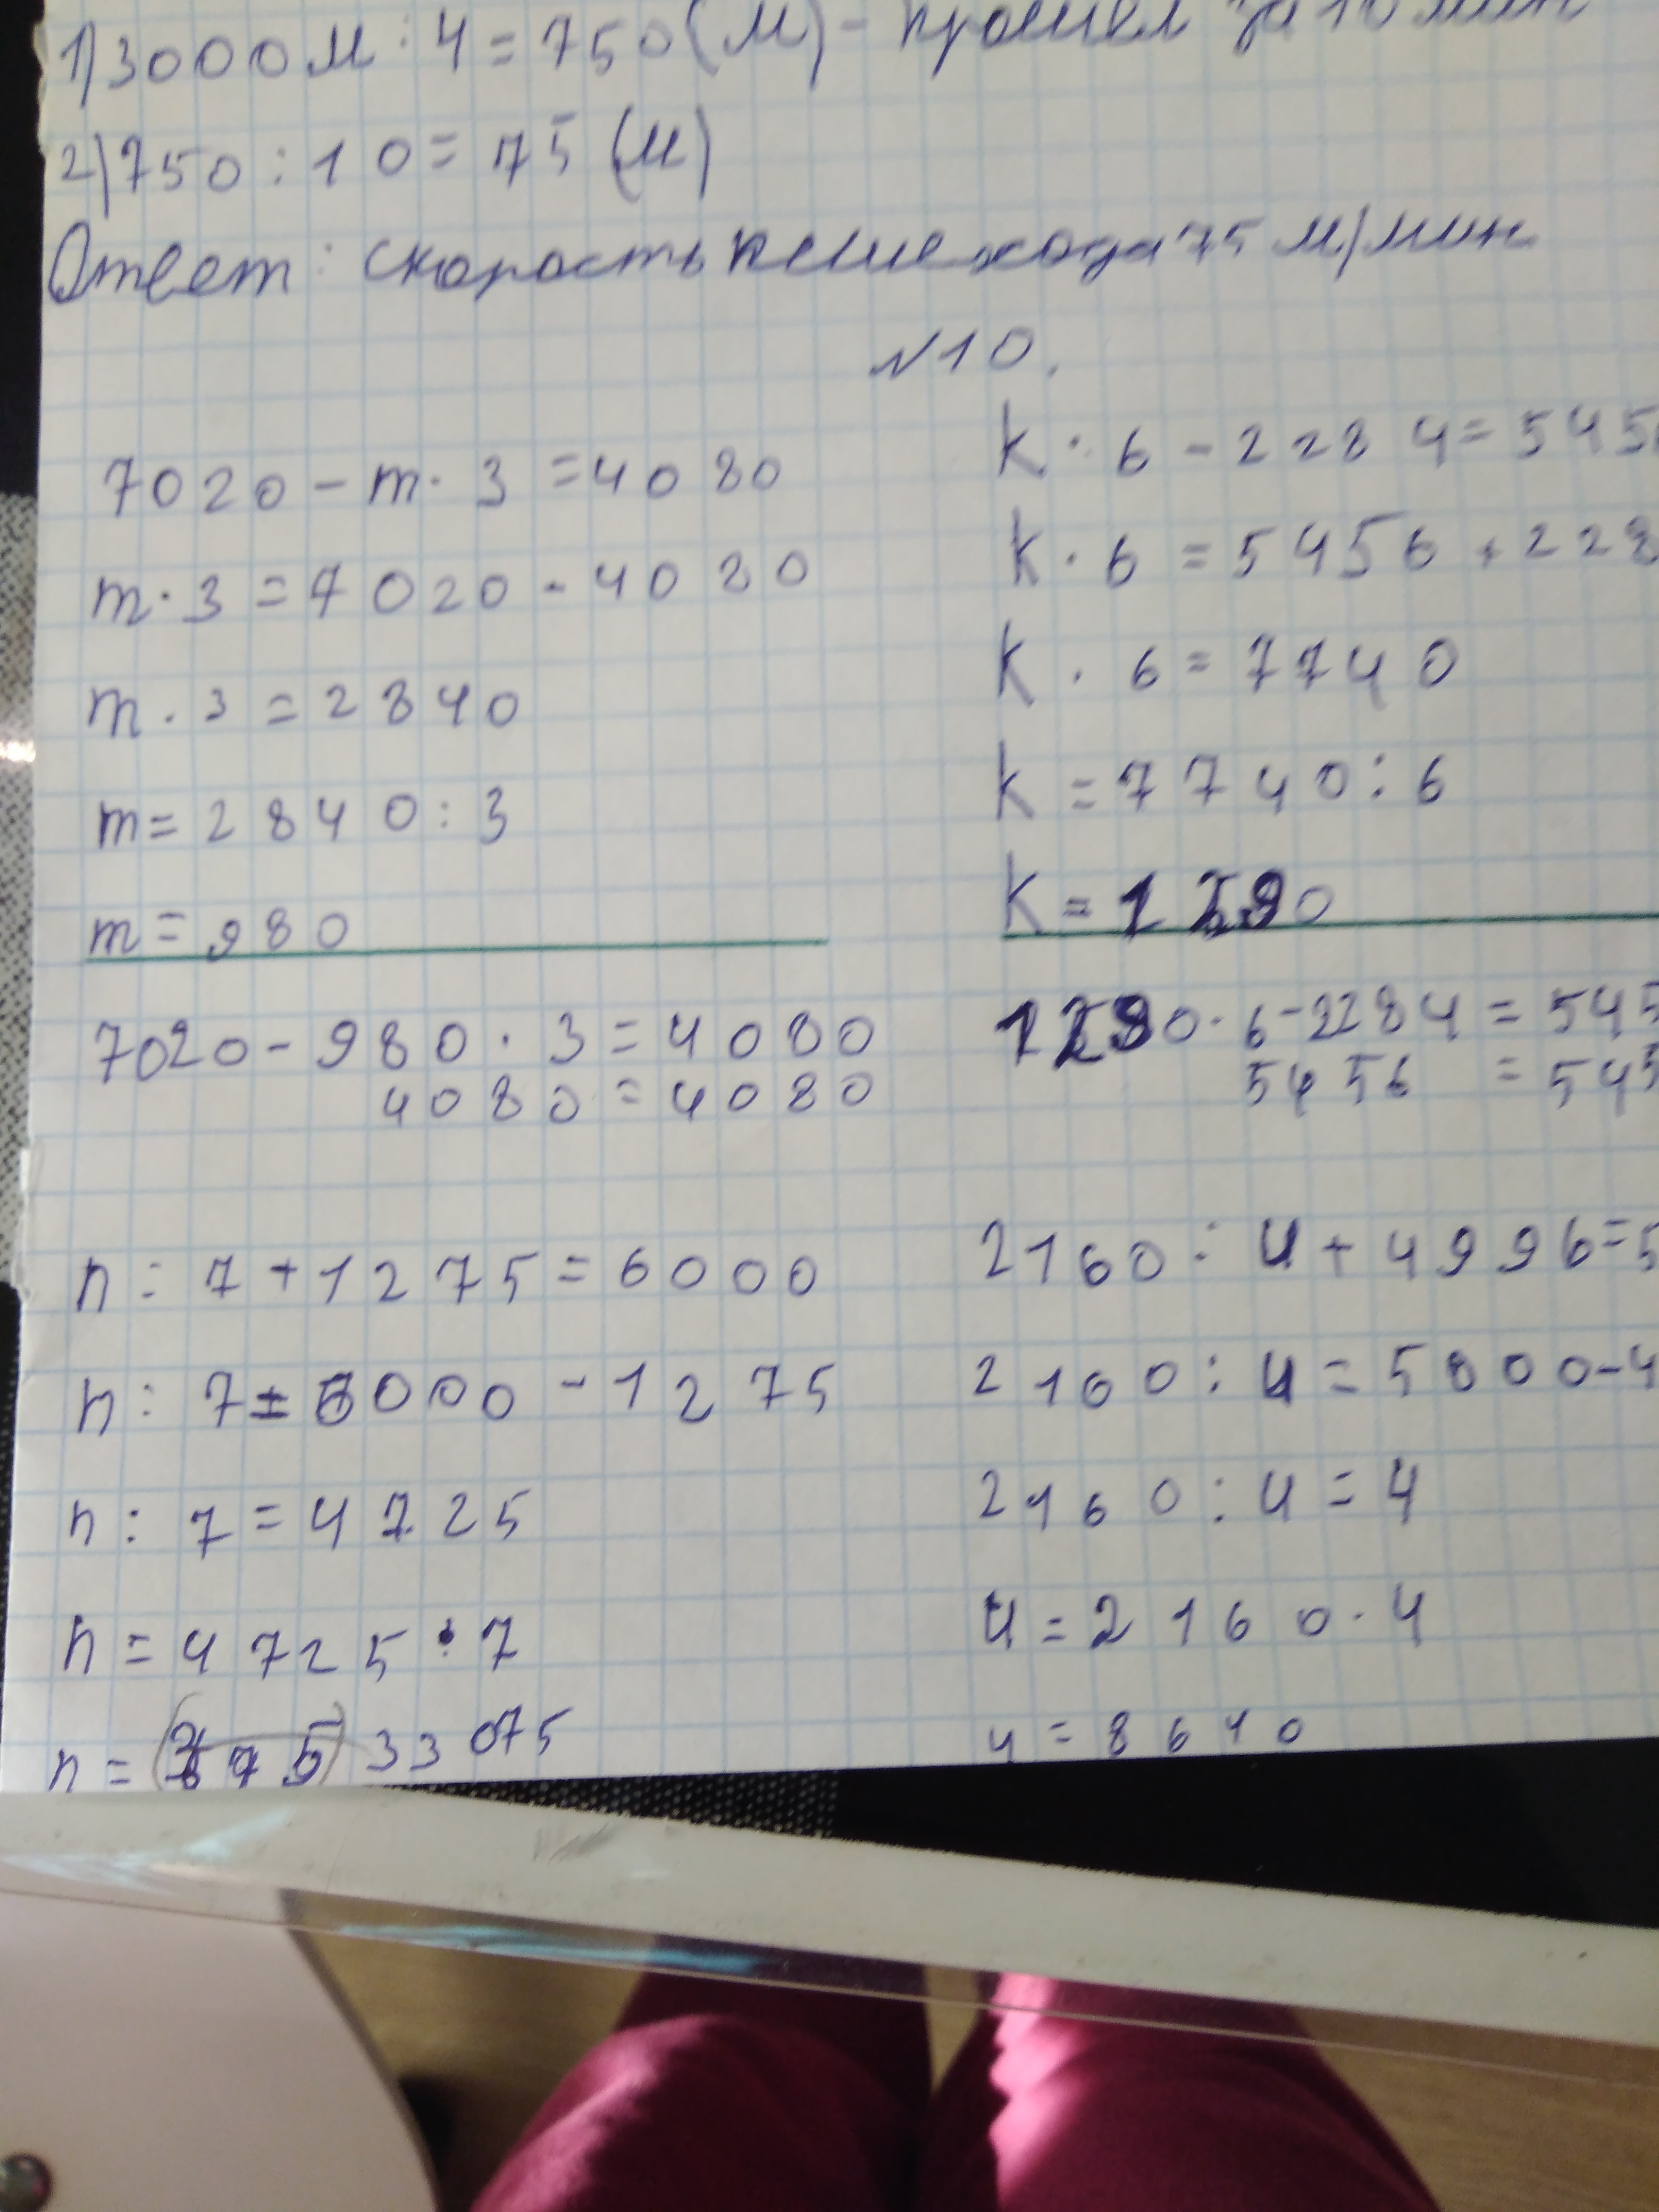 1) 3000 м : 4 = 750 (м) - прошёл за 10 мин
2) 750 : 10 = 75 (м)
Ответ: скорость пешехода 75 м/мин
№10.
7020 - m · 3 = 4080
m · 3 = 7020 - 4080
m · 3 = 2840
m = 2840 : 3
m = 980
7020 - 980 · 3 = 4080
4080 = 4080
k · 6 - 2284 = 545
k · 6 = 5456 + 228
k · 6 = 7740
k = 7740 : 6
k = 1290
1290 · 6 - 2284 = 545
5456 = 545
n : 7 + 1275 = 6000
n : 7 = 6000 - 1275
n : 7 = 4725
n = 4725 · 7
n = 33075
2160 : u + 4996 = 5
2160 : u = 5000 - 4
2160 : u = 4
u = 2160 · 4
u = 8640